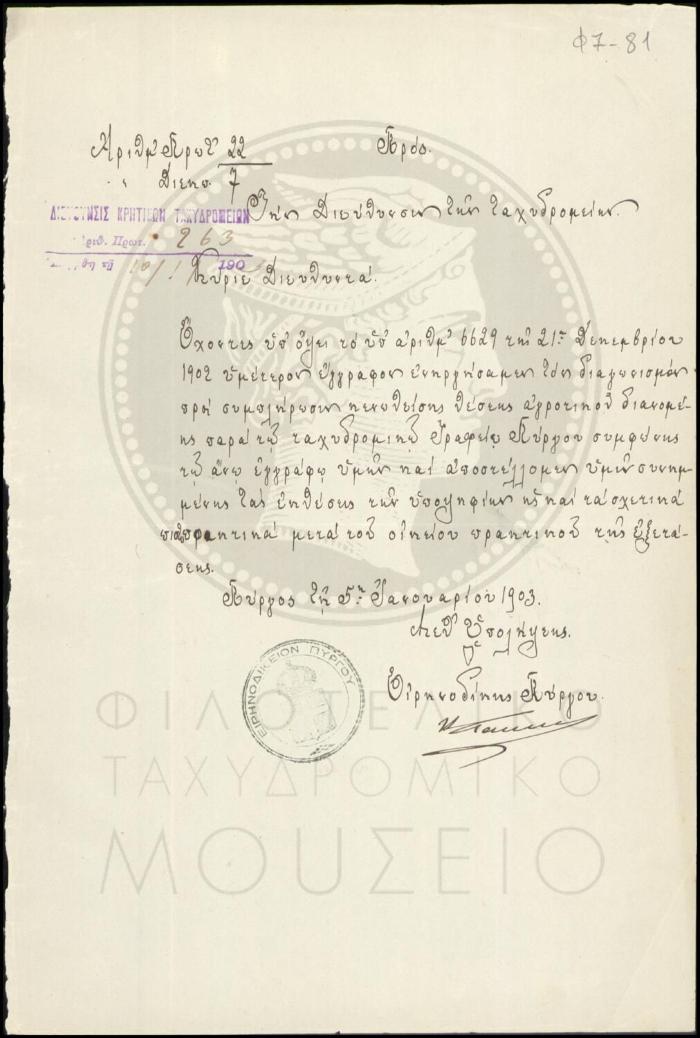 Φ7-81
Ἀριθ. Πρωτ. 22
" Διεκπ. 7
Πρός
ΔΙΕΥΘΥΝΣΙΣ ΚΡΗΤΙΚΩΝ ΤΑΧΥΔΡΟΜΕΙΩΝ
Τὴν Διεύθυνσιν τῶν ταχυδρομείων.
ριθ. Πρωτ. 263
10/1/ 190
Κύριε Διευθυντά.
Ἔχοντες ὑπ' ὄψει τὸ ὑπ' ἀριθμ. 6629 τῆς 21ης Δεκεμβρίου
1902 ὑμέτερον ἔγγραφον ἐνηργήσαμεν τὸν διαγωνισμὸν
πρὸς συμπλήρωσιν κενωθείσης θέσεως ἀγροτικοῦ διανομέ-
ως παρὰ τῷ ταχυδρομικῷ Γραφείῳ Πύργου συμφώνως
τῷ ἄνω ἐγγράφῳ ὑμῶν καὶ ἀποστέλλομεν ὑμῖν συνημ-
μένως τὰς ἐκθέσεις τῶν ὑποψηφίων ὡς καὶ τὰ σχετικὰ
πρακτικὰ μετὰ τοῦ οἰκείου πρακτικοῦ τῆς ἐξετά-
σεως.
Πύργος τῇ 5ῃ Ἰανουαρίου 1903.
Μεθ' Ὑπολήψεως.
Ὁ
Εἰρηνοδίκης Πύργου.
ΕΙΡΗΝΟΔΙΚΕΙΟΝ ΠΥΡΓΟΥ
ΦΙΛΟΤΕΛΙΚΟ
ΤΑΧΥΔΡΟΜΙΚΟ
ΜΟΥΣΕΙΟ